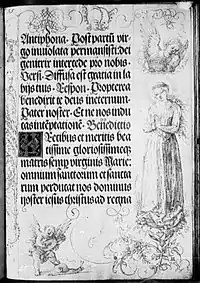 Antiphona. Post partū vir
go inviolata permansisti: dei
genitrix intercede pro nobis.
Versi. Diffusa est gratia in la
bijs tuis. Respon. Propterea
benedixit te deus in eternum.
Pater noster. Et ne nos indu
cas in tēptationē. Benedictio
Precibus et meritis bea
tissime gloriosissimeq;
matris semp virginis Marie:
omnium sanctorum et sancta
rum perducat nos dominus
noster iesus christus ad regna